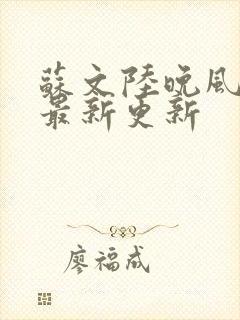 蘇文陸晚風
最新更新
廖福成